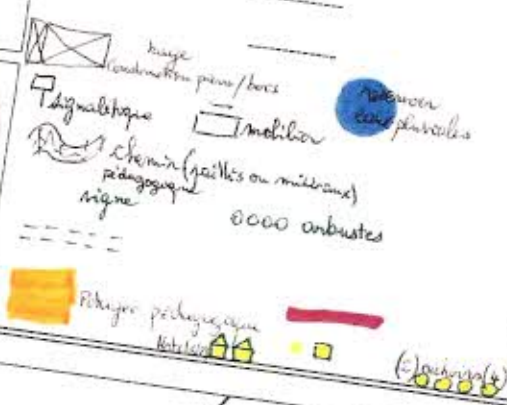 construction pierre/bois
signalétique
mobilier
réservoir
eaux pluviales
chemin (paillis ou minéraux)
pédagogique
vigne
0000 arbustes
Potager pédagogique